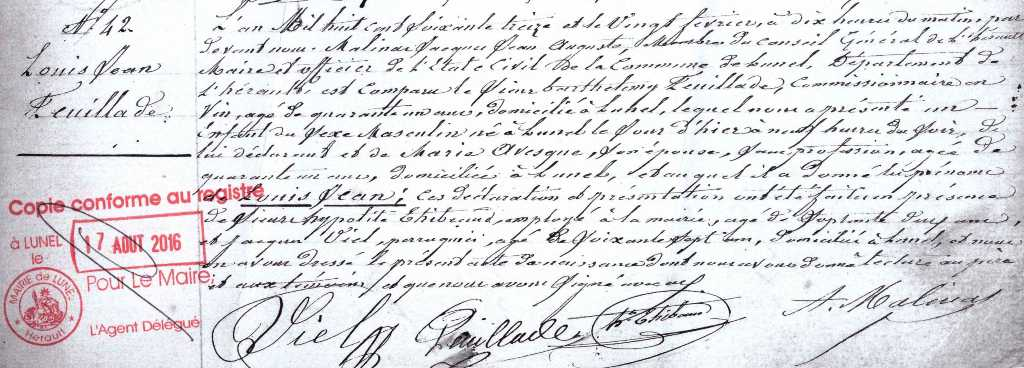 N° 42
Louis Jean
Feuillade
L'an Mil huit cent soixante treize et le Vingt février, à dix heures du matin, par
devant nous Jacques Jean Auguste, Membre du Conseil Général de l'hérault
Maire et officier de l'État Civil de la Commune de Lunel, Département de
l'hérault est comparu le sieur Barthelemy Feuillade, Commissionnaire en
Vin, agé de quarante un ans, domicilié à Lunel, lequel nous a présenté un
Enfant du Sexe Masculin né à Lunel le jour d'hier à neuf heures du soir, de
lui déclarant et de Marie Avesque, son épouse, sans profession, agée de
quarante un ans, domiciliée à Lunel, et auquel il a donné les prénoms
de Louis Jean; ces déclaration et présentation ont été faites en présence
de sieurs hypolite employé à la mairie, agé de ans,
et Jacques Viel, agé de soixante sept ans, domiciliés à Lunel, et nous
en avons dressé le présent acte de naissance dont nous avons donné lecture au père
et aux témoins et que nous avons signé avec eux
Viel Feuillade
Copie conforme au registre
à LUNEL
le
17 AOUT 2016
Pour Le Maire,
L'Agent Délégué
MAIRIE de LUNEL
Hérault